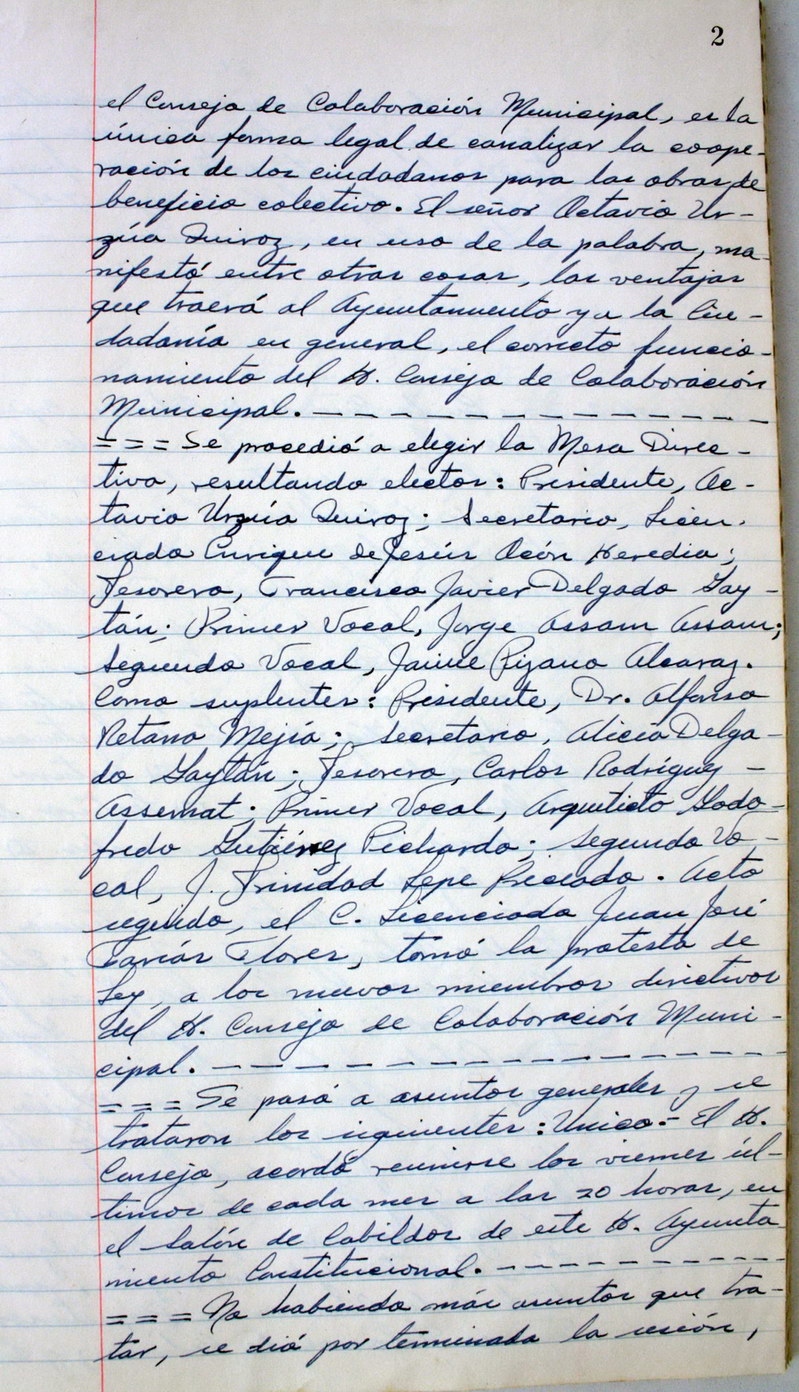 2
el Consejo de Colaboración Municipal, es la
única forma legal de canalizar la coope-
ración de los ciudadanos para las obras de
beneficio colectivo. El señor Octavio Ur-
zúa Quiroz, en uso de la palabra, ma-
nifestó entre otras cosas, las ventajas
que traerá al Ayuntamiento y a la Ciu-
dadanía en general, el correcto funcio-
namiento del H. Consejo de Colaboración
Municipal. — — — — — — — — — — — — —
= = = Se procedió a elegir la Mesa Direc-
tiva, resultando electos: Presidente, Oc-
tavio Urzúa Quiroz; Secretario, Licen-
ciado Enrique de Jesús Ocón Heredia;
Tesorero, Francisco Javier Delgado Gay-
tán; Primer Vocal, Jorge Assam Assam;
Segundo Vocal, Jaime Pizano Alcaraz.
Como suplentes: Presidente, Dr. Alfonso
Retano Mejía; Secretario, Alicia Delga-
do Gaytán; Tesorero, Carlos Rodríguez -
Assemat; Primer Vocal, Arquitecto Godo-
fredo Gutiérrez Pichardo; Segundo Vo-
cal, J. Trinidad Lepe Preciado. Acto
seguido, el C. Licenciado Juan José
Farías Flores, tomó la protesta de
Ley, a los nuevos miembros directivos
del H. Consejo de Colaboración Muni-
cipal. — — — — — — — — — — — — — — —
= = = Se pasó a asuntos generales y se
trataron los siguientes: Unico.- El H.
Consejo, acordó reunirse los viernes úl-
timos de cada mes a las 20 horas, en
el Salón de Cabildos de este H. Ayunta
miento Constitucional. — — — — — — — — —
= = = No habiendo más asuntos que tra-
tar, se dió por terminada la sesión,